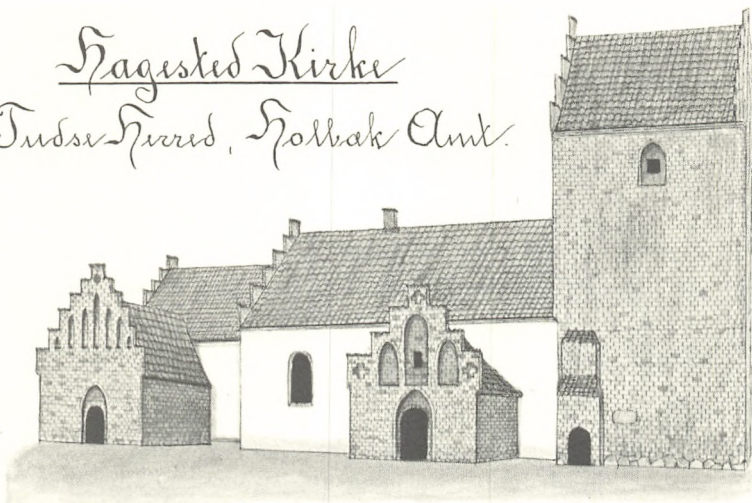 Hagested Kirke
Tudse Herred, Holbæk Amt.